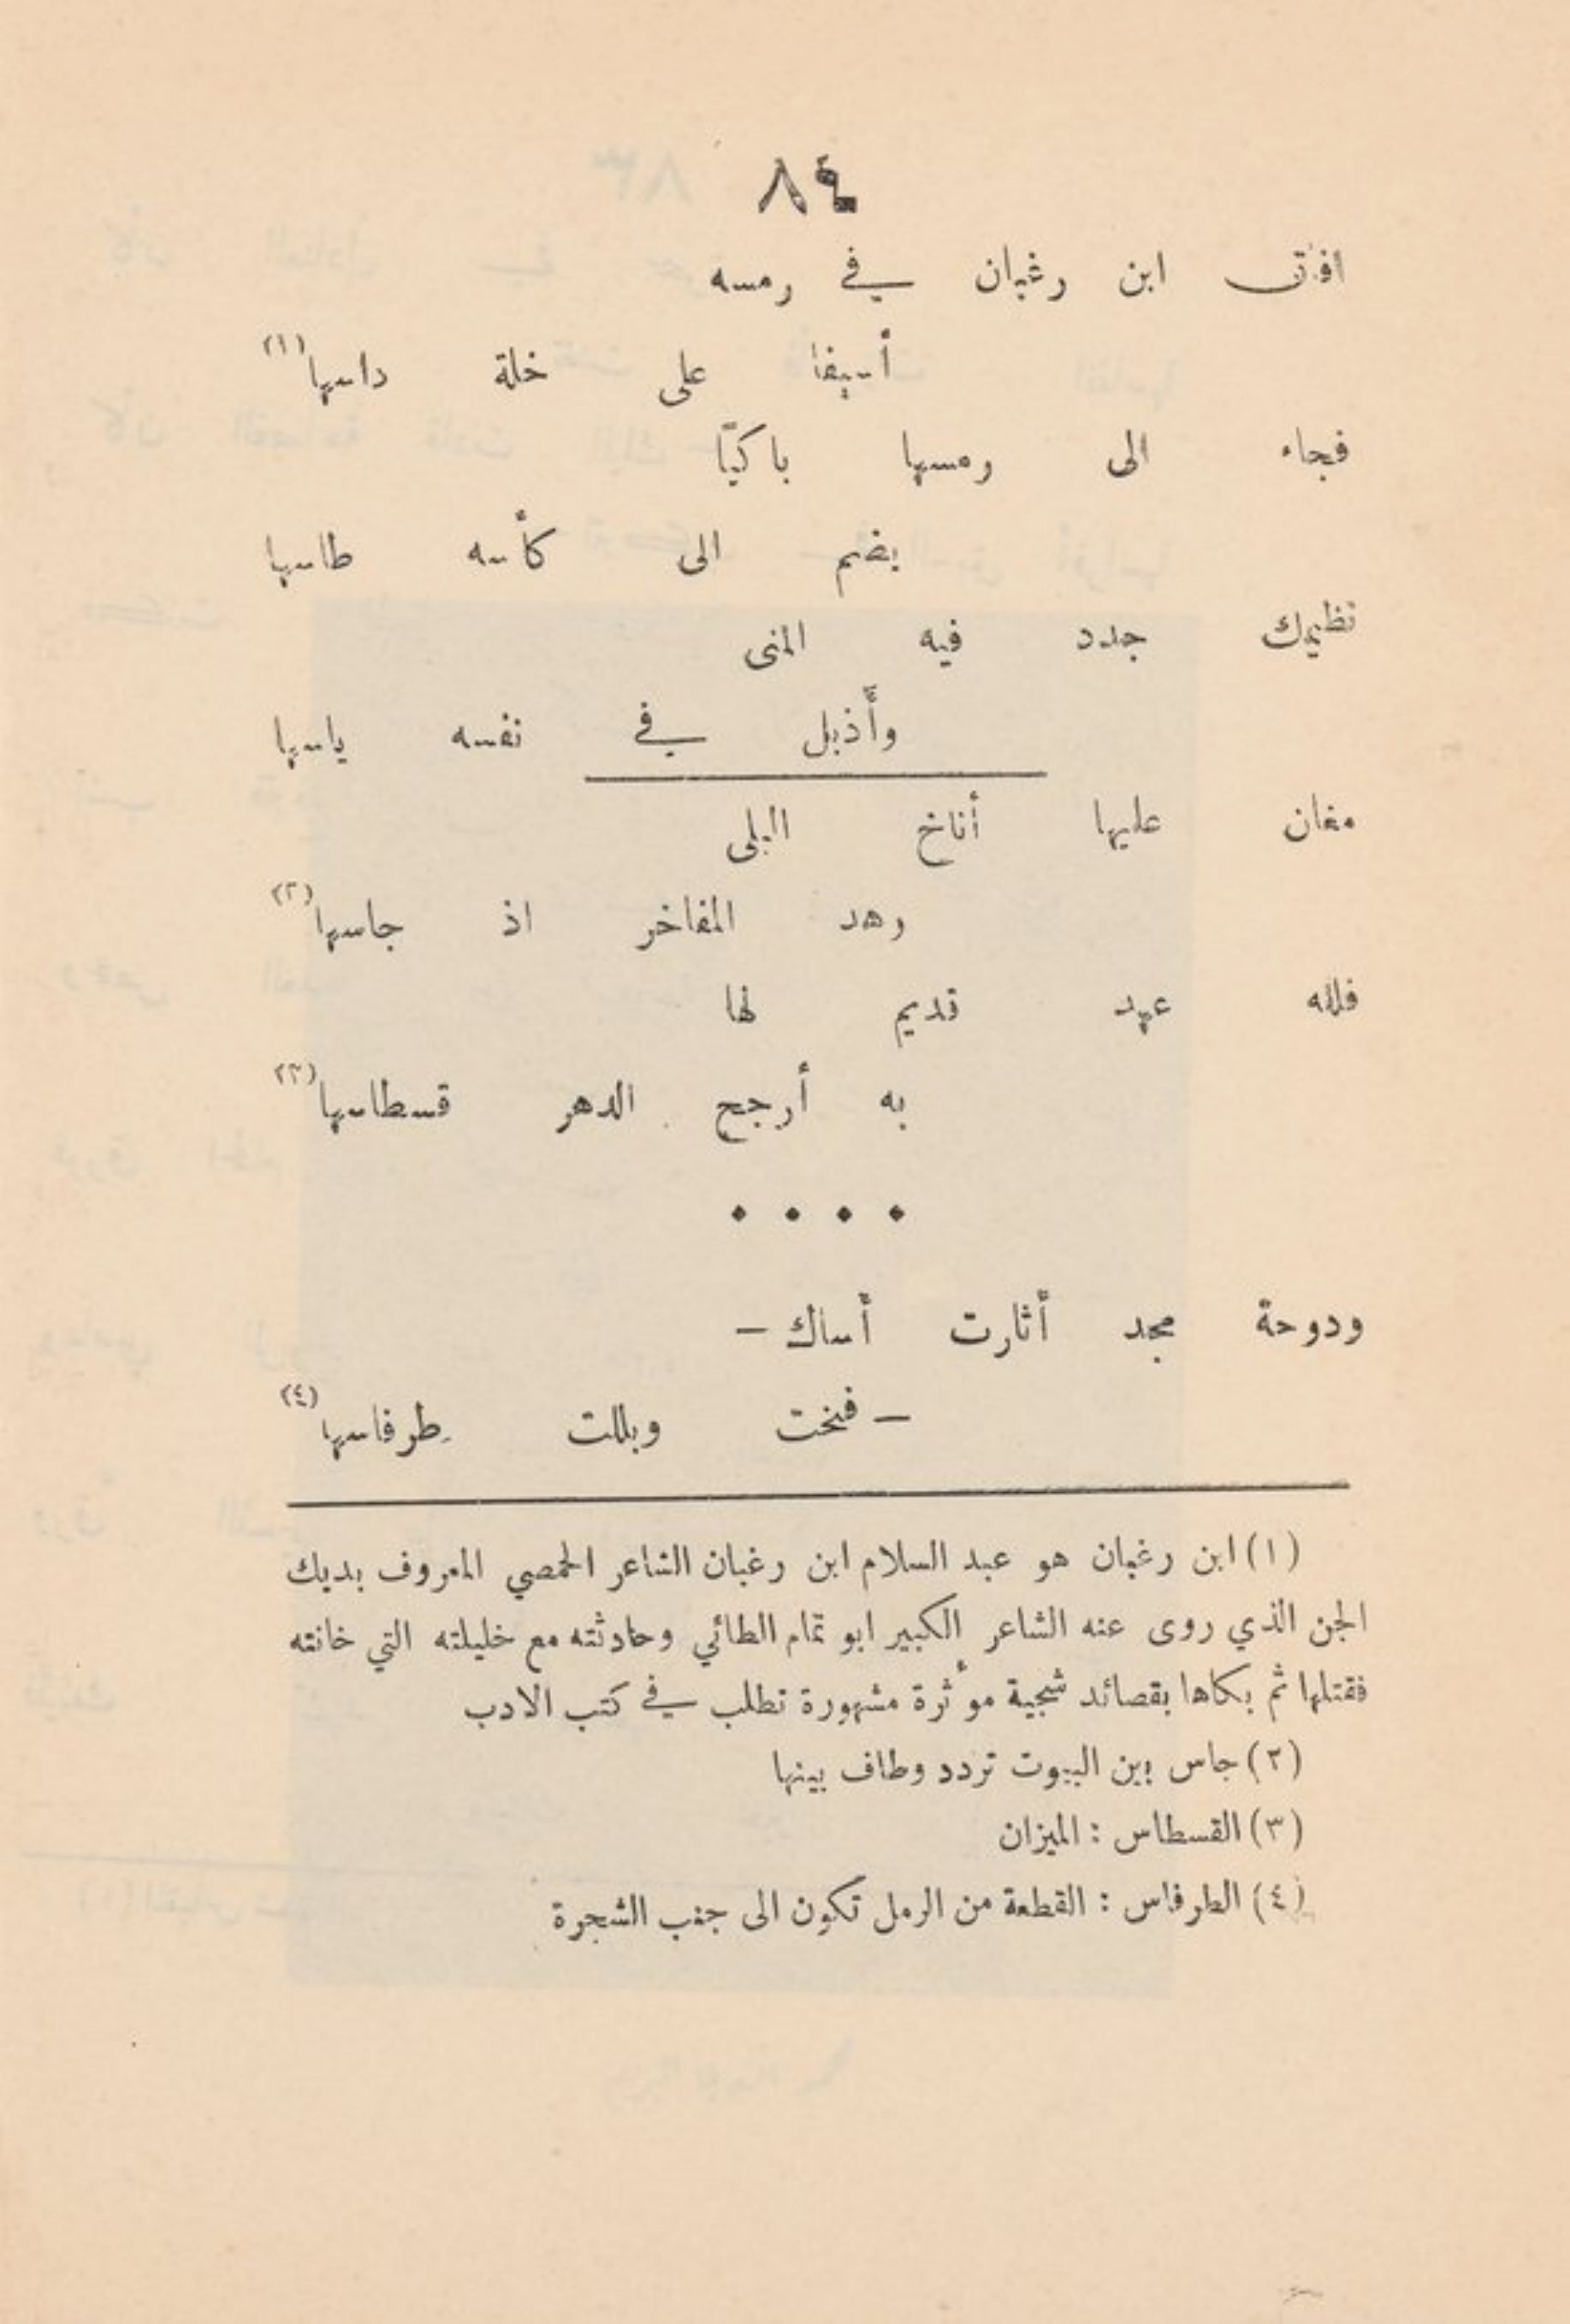 ٨٤
افاق ابن رغبان في رمسه
أسيفا على خلة داسها (١)
فجاء الى رمسها باكيًا
يضم الى كأسه طاسها
نظيمك جدد فيه المنى
وأذبل في نفسه ياسها
مغان عليها أناخ البلى
وهد المفاخر اذ جاسها (٢)
فلله عهد قديم لها
به أرجح الدهر قسطاسها (٣)
• • • •
ودوحة مجد أثارت أساك –
– فنحت وبللت طرفاسها (٤)
(١) ابن رغبان هو عبد السلام ابن رغبان الشاعر الحمصي المعروف بديك
الجن الذي روى عنه الشاعر الكبير ابو تمام الطائي وحادثته مع خليلته التي خانته
فقتلها ثم بكاها بقصائد شجية مؤثرة مشهورة تطلب في كتب الادب
(٢) جاس بين البيوت تردد وطاف بينها
(٣) القسطاس : الميزان
(٤) الطرفاس : القطعة من الرمل تكون الى جنب الشجرة